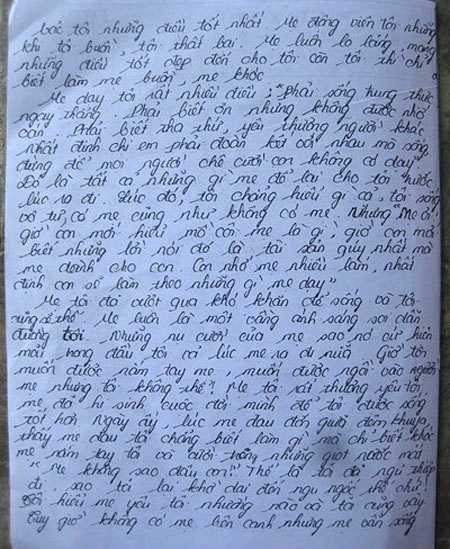 bảo tôi những điều tốt nhất. Mẹ động viên tôi những
khi tô buồn, tôi thất bại. Mẹ luôn lo lắng, mang
những điều tốt đẹp đến cho tôi còn tôi thì chỉ
biết làm mẹ buồn, mẹ khóc.
Mẹ dạy tôi rất nhiều điều: "Phải sống trung thực
ngay thẳng. Phải biết ơn nhưng không được nhớ
oán. Phải biết tha thứ, yêu thương người khác.
Nhất định chị em phải đoàn kết với nhau mà sống
đừng để mọi người chê cười con không có dạy"
Đó là tất cả những gì mẹ để lại cho tôi trước
lúc ra đi. Lúc đó, tôi chẳng hiểu gì cả, tôi sống
vô tư, có mẹ cũng như không có mẹ. Nhưng "Mẹ ơi!
giờ con mới hiểu mồ côi mẹ là gì, giờ con mới
biết những lời nói đó là tài sản quý nhất mà
mẹ dành cho con. Con nhớ mẹ nhiều lắm, nhất
định con sẽ làm theo những gì mẹ dạy"
Mẹ tôi đã vượt qua khó khăn để sống và tôi
cũng sẽ thế. Mẹ luôn là một vầng ánh sáng soi dẫn
đường tôi. Nhưng nụ cười của mẹ sao nó cứ hiện
mãi trong đầu tôi cả lúc mẹ ra đi nữa. Giờ tôi
muốn được nắm tay mẹ, muốn được ngồi vào người
mẹ nhưng tôi không thể". Mẹ tôi rất thương yêu tôi,
mẹ đã hi sinh cuộc đời mình để tôi được sống
tốt hơn. Ngày ấy, lúc mẹ đau đớn giữa đêm khuya,
thấy mẹ đau tôi chẳng biết làm gì mà chỉ biết khóc
mẹ nắm tay tôi và cười những giọt nước mắt
"Mẹ không sao đâu con!" Thế là tôi đã ngủ thiếp
đi. sao tôi lại khờ dại đến ngu ngốc thế chứ!
Tôi hiểu mẹ yêu tôi nhường nào và tôi cũng vậy
Tuy giờ không có mẹ bên cạnh nhưng mẹ vẫn sống